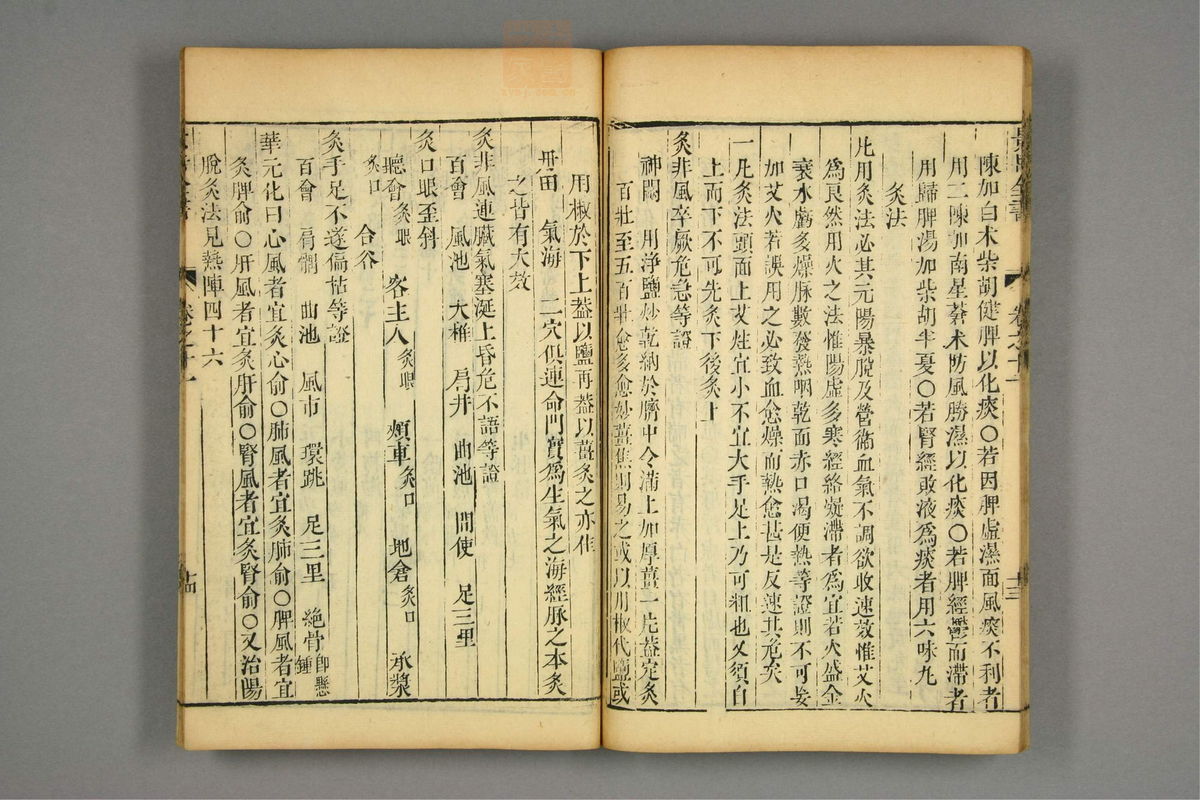 陳加白木柴胡健脾以化痰〇若因脾虛濕而風痰不利者
用二陳加南星蒼术防風勝濕以化痰〇若脾經鬱而滯者
用歸脾湯加柴胡半夏〇若腎經敗液爲痰者用六味丸
灸法
凡用灸法必其元陽暴脫及營衞血氣不調欲收速效惟艾火
爲良然用火之法惟陽虛多寒經絡凝滯者爲宜若火盛金
衰水虧多燥脉數發熱咽乾面赤口渴便熱等證則不可妄
加艾火若誤用之必致血愈燥而熱愈甚是反速其危矣
一凡灸法頭面上艾炷宜小不宜大手足上乃可粗也又須自
上而下不可先灸下後灸上
灸非風卒厥危急等證
神闕 用淨鹽炒乾納於臍中令滿上加厚薑一片葢定灸
百壯至五百壯愈多愈妙薑焦則易之或以川椒代鹽或
用椒於下上葢以鹽再葢以薑灸之亦佳
丹田 氣海 二穴俱連命門實爲生氣之海經脉之本灸
之皆有大效
灸非風連臟氣塞涎上昏危不語等證
百會 風池 大椎 肩井 曲池 間使 足三里
灸口眼歪斜
聽會灸眼 客主人灸眼 頰車灸口 地倉灸口 承漿
灸口 合谷
灸手足不遂偏枯等證
百會 肩髃 曲池 風市 環跳 足三里 絕骨即懸鍾
華元化曰心風者宜灸心俞〇肺風者宜灸肺俞〇脾風者宜
灸脾俞〇肝風者宜灸肝俞〇腎風者宜灸腎俞〇又治陽
脫灸法見熱陣四十六
卷之十一